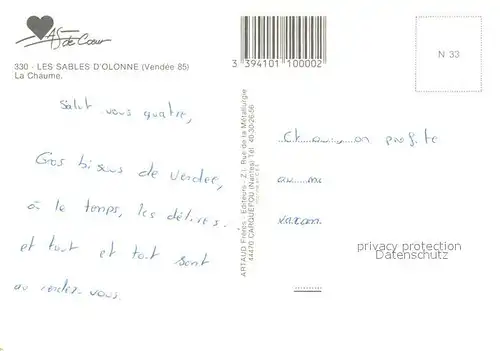 As de Cœur
330 - LES SABLES D'OLONNE (Vendée 85)
La Chaume.
3 394101 100002
N 33
ARTAUD Frères - Editeurs - Z.I. Rue de la Métallurgie
44470 CARQUEFOU (Nantes) Tél. 40-30-26-56
Salut vous quatre,
Gros bisous de Vendée,
où le temps, les délires...
et tout et tout sont
au rendez-vous.
Et on profite
au
privacy protection
Datenschutz